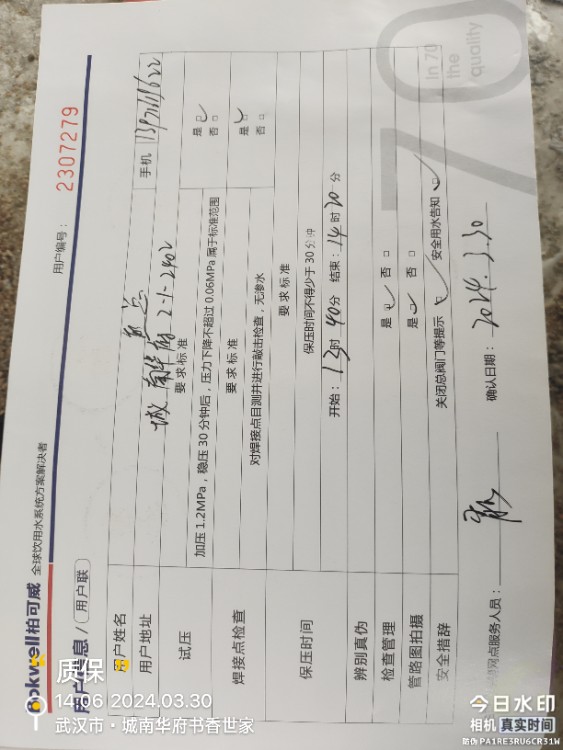 Pokwell柏可威 全球饮用水系统方案解决者
用户编号: 2307279
用户信息 / 用户联
用户姓名
手机
用户地址 城南华府 2-1-2402
试压
要求标准
加压 1.2MPa，稳压 30 分钟后，压力下降不超过 0.06MPa 属于标准范围
是 否
焊接点检查
要求标准
对焊接点目测并进行敲击检查，无渗水
是 否
保压时间
要求标准
保压时间不得少于 30 分钟
开始: 13 时 40 分 结束: 14 时 20 分
辨别真伪
检查管理 是 否
管路图拍摄 是 否
安全措辞 关闭总阀门等提示 安全用水告知
网点服务人员:
确认日期: 2024.3.30
70
In 70
the
quality
质保
14:06 2024.03.30
武汉市·城南华府书香世家
今日水印
相机 真实时间
防伪 PA1RE3RU6CR31W